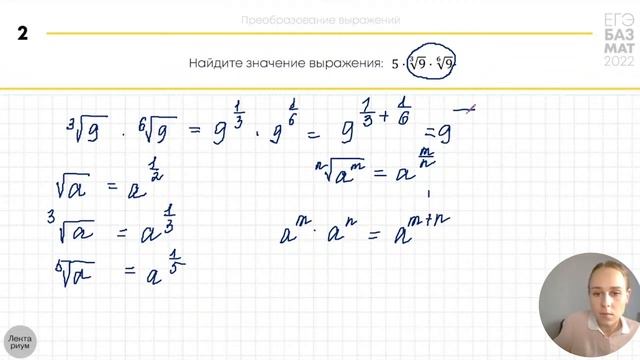 Преобразование выражений
ЕГЭ
БАЗ
МАТ
2022
2
Найдите значение выражения: 5 · ∛9 · ⁶√9
∛9 · ⁶√9 = 9^(1/3) · 9^(1/6) = 9^(1/3 + 1/6) = 9
√a = a^(1/2)
ⁿ√(a^m) = a^(m/n)
∛a = a^(1/3)
a^m · a^n = a^(m+n)
⁵√a = a^(1/5)
Лента
риум